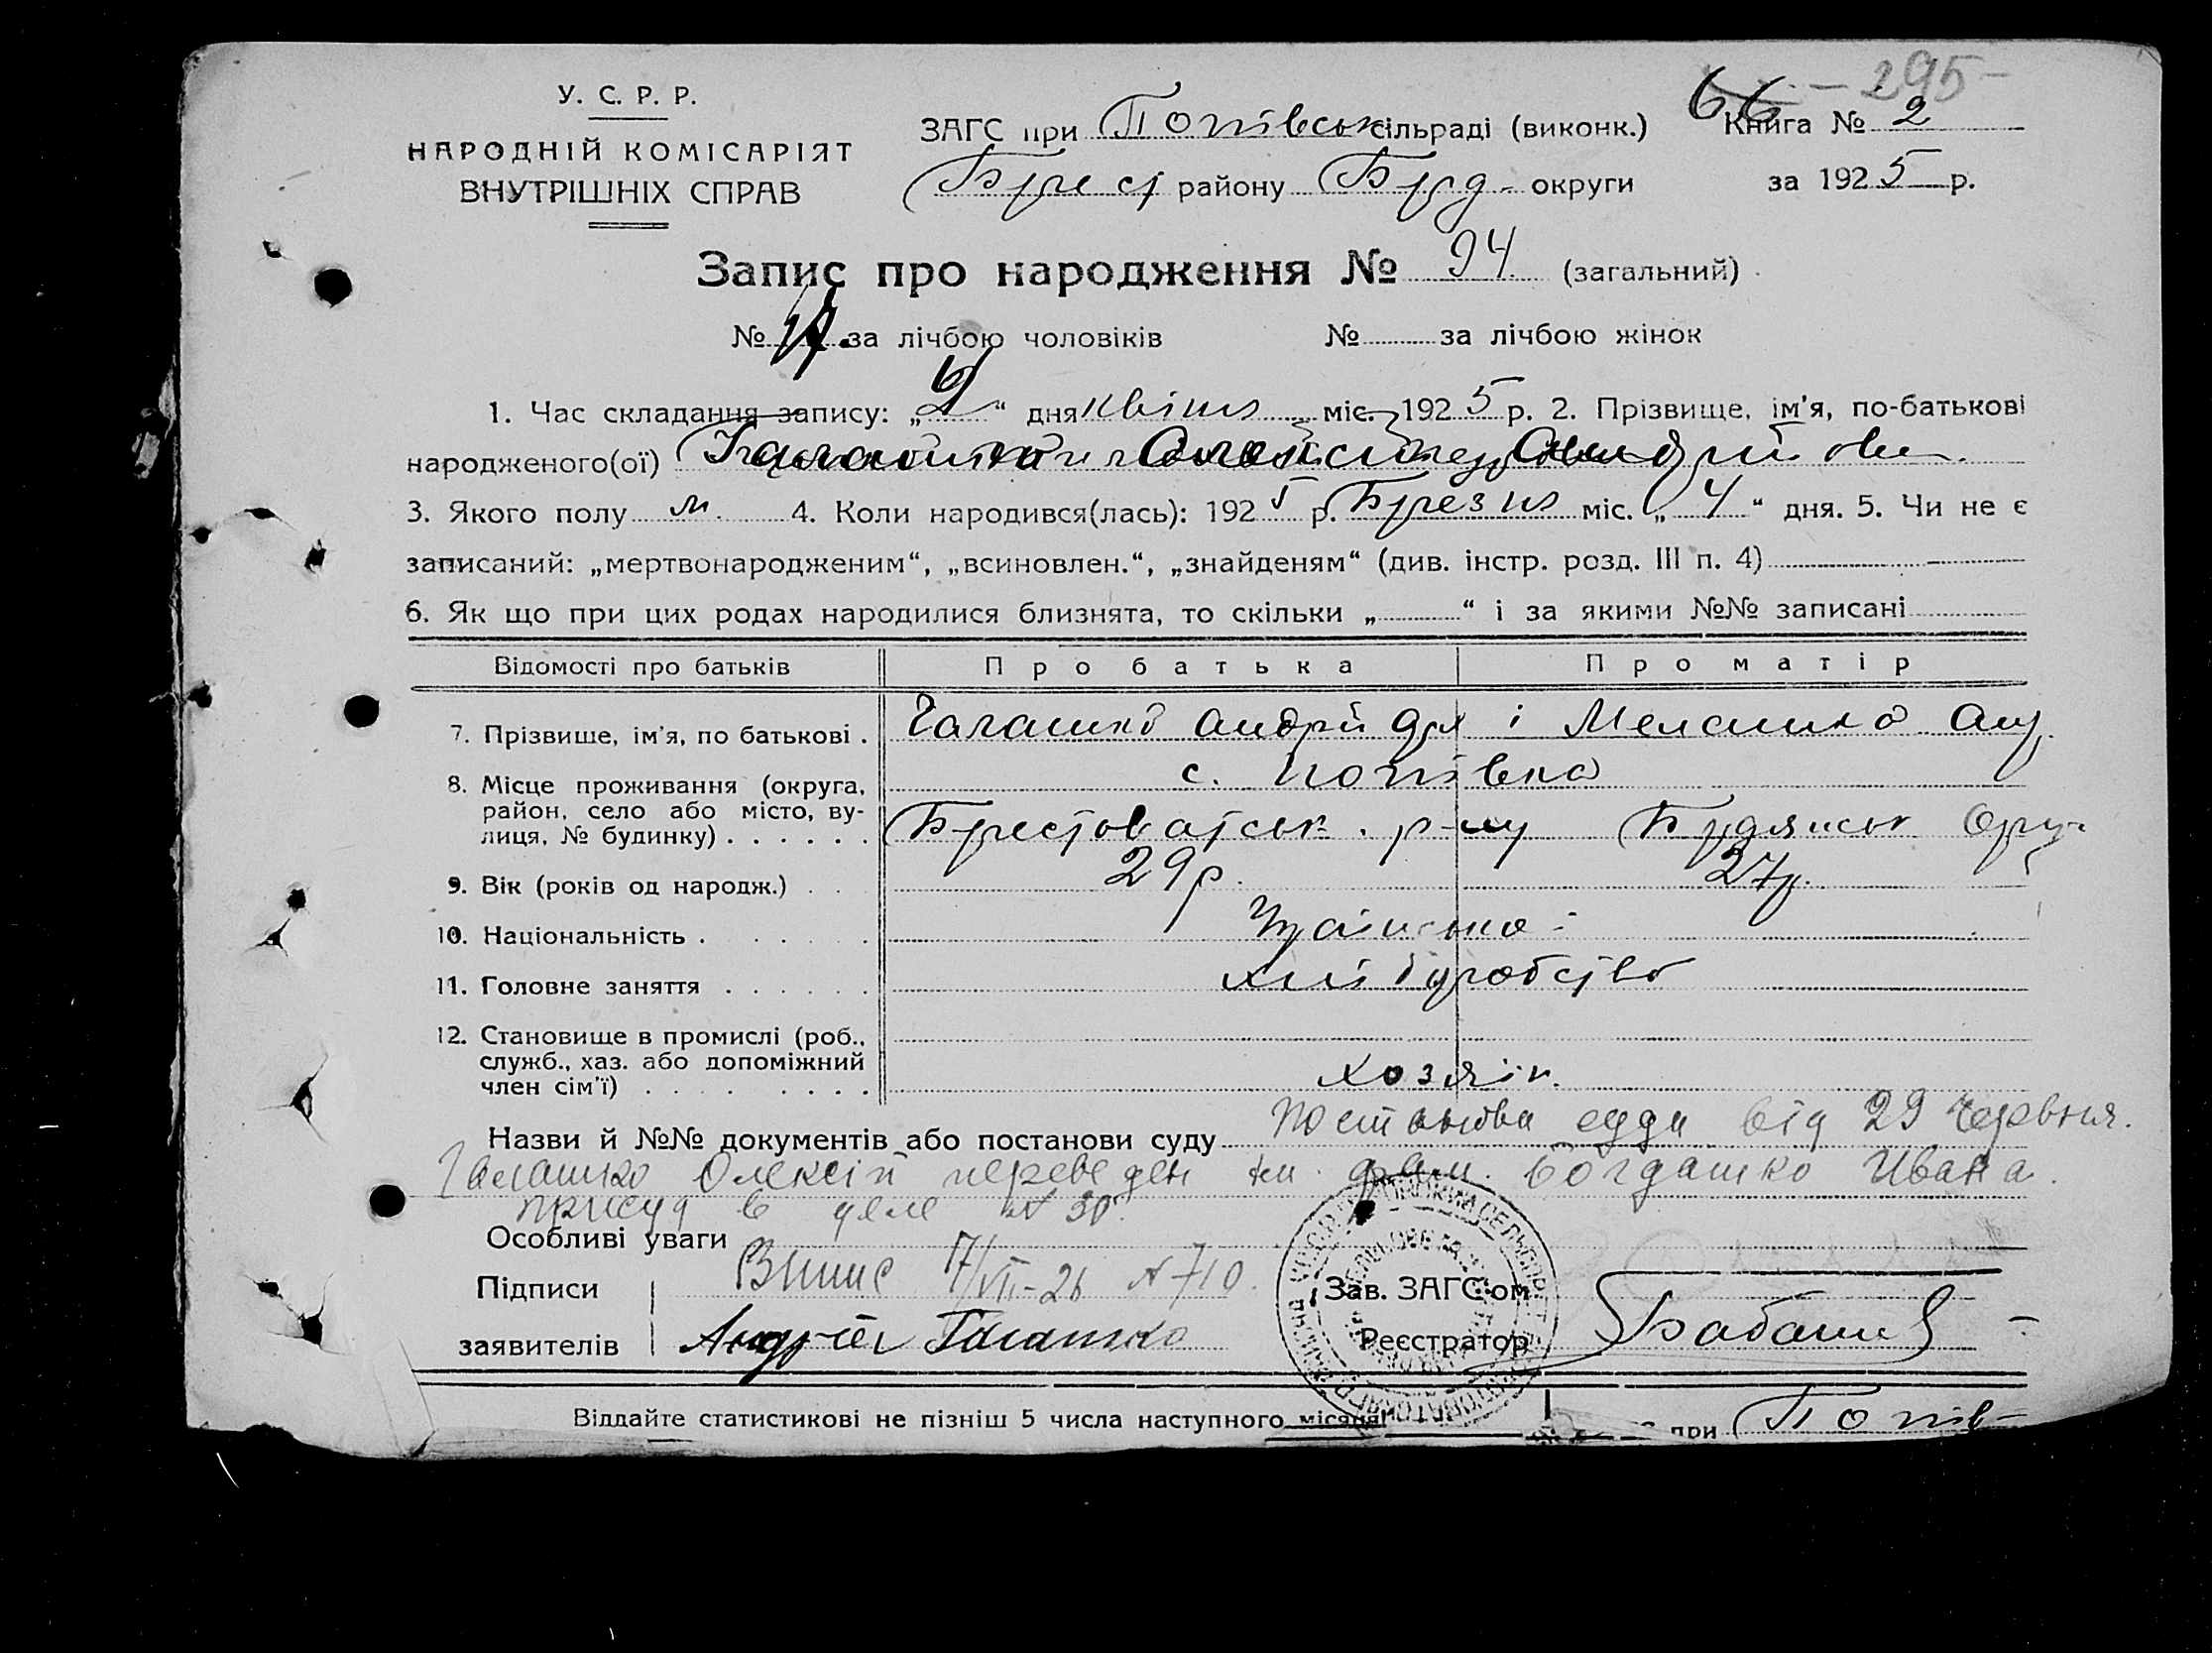 У. С. Р. Р.
НАРОДНІЙ КОМІСАРІЯТ
ВНУТРІШНІХ СПРАВ
ЗАГС при Попівськ сільраді (виконк.)
Брест району Берд- округи
66 — 295 —
Книга № 2
за 1925 р.
Запис про народження № 94 (загальний)
№ за лічбою чоловіків № за лічбою жінок
1. Час складання запису: „ “ дня квітн міс. 1925 р. 2. Прізвище, ім'я, по-батькові
народженого(ої) Андрійов
3. Якого полу м. 4. Коли народився(лась): 1925 р. Березня міс. „ 4 “ дня. 5. Чи не є
записаний: „мертвонародженим“, „всиновлен.“, „знайденям“ (див. інстр. розд. III п. 4)
6. Як що при цих родах народилися близнята, то скільки „ “ і за якими №№ записані
Відомості про батьків Про батька Про матір
7. Прізвище, ім'я, по батькові . Галашко Андрій і
8. Місце проживання (округа, с. Попівка
район, село або місто, ву-
лиця, № будинку) . . . . . . Брестоватськ. р-ну Бердянськ Окру
9. Вік (років од народж.) . . 29 р. 27 р.
10. Національність . . . . . .
11. Головне заняття . . . . . . хліборобство
12. Становище в промислі (роб.,
служб., хаз. або допоміжний
член сім'ї) . . . . . . . . хозяїн.
Назви й №№ документів або постанови суду Постанова суда від 29 червня.
Галашко Олексій переведен на фам. Богдашко Ивана.
присуд в деле № 30
Особливі уваги
Підписи Випис 17/VII-26 № 710. Зав. ЗАГС'ом
заявителів Андрій Галашко Реєстратор
Віддайте статистикові не пізніш 5 числа наступного місяця!
при Попів-